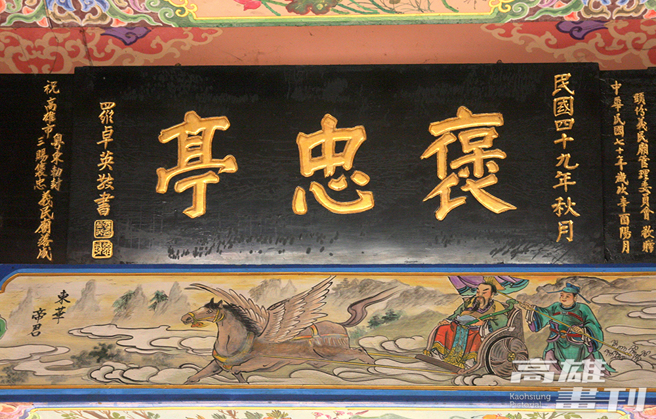 頭份義民廟管理委員會 敬贈
中華民國七十年歲次辛酉陽月
民國四十九年秋月
褒忠亭
羅卓英敬書
祝 高雄市粵東初封三賜褒忠義民廟落成
東華
帝君
高雄
Kaohsiung
Pictorial
畫刊